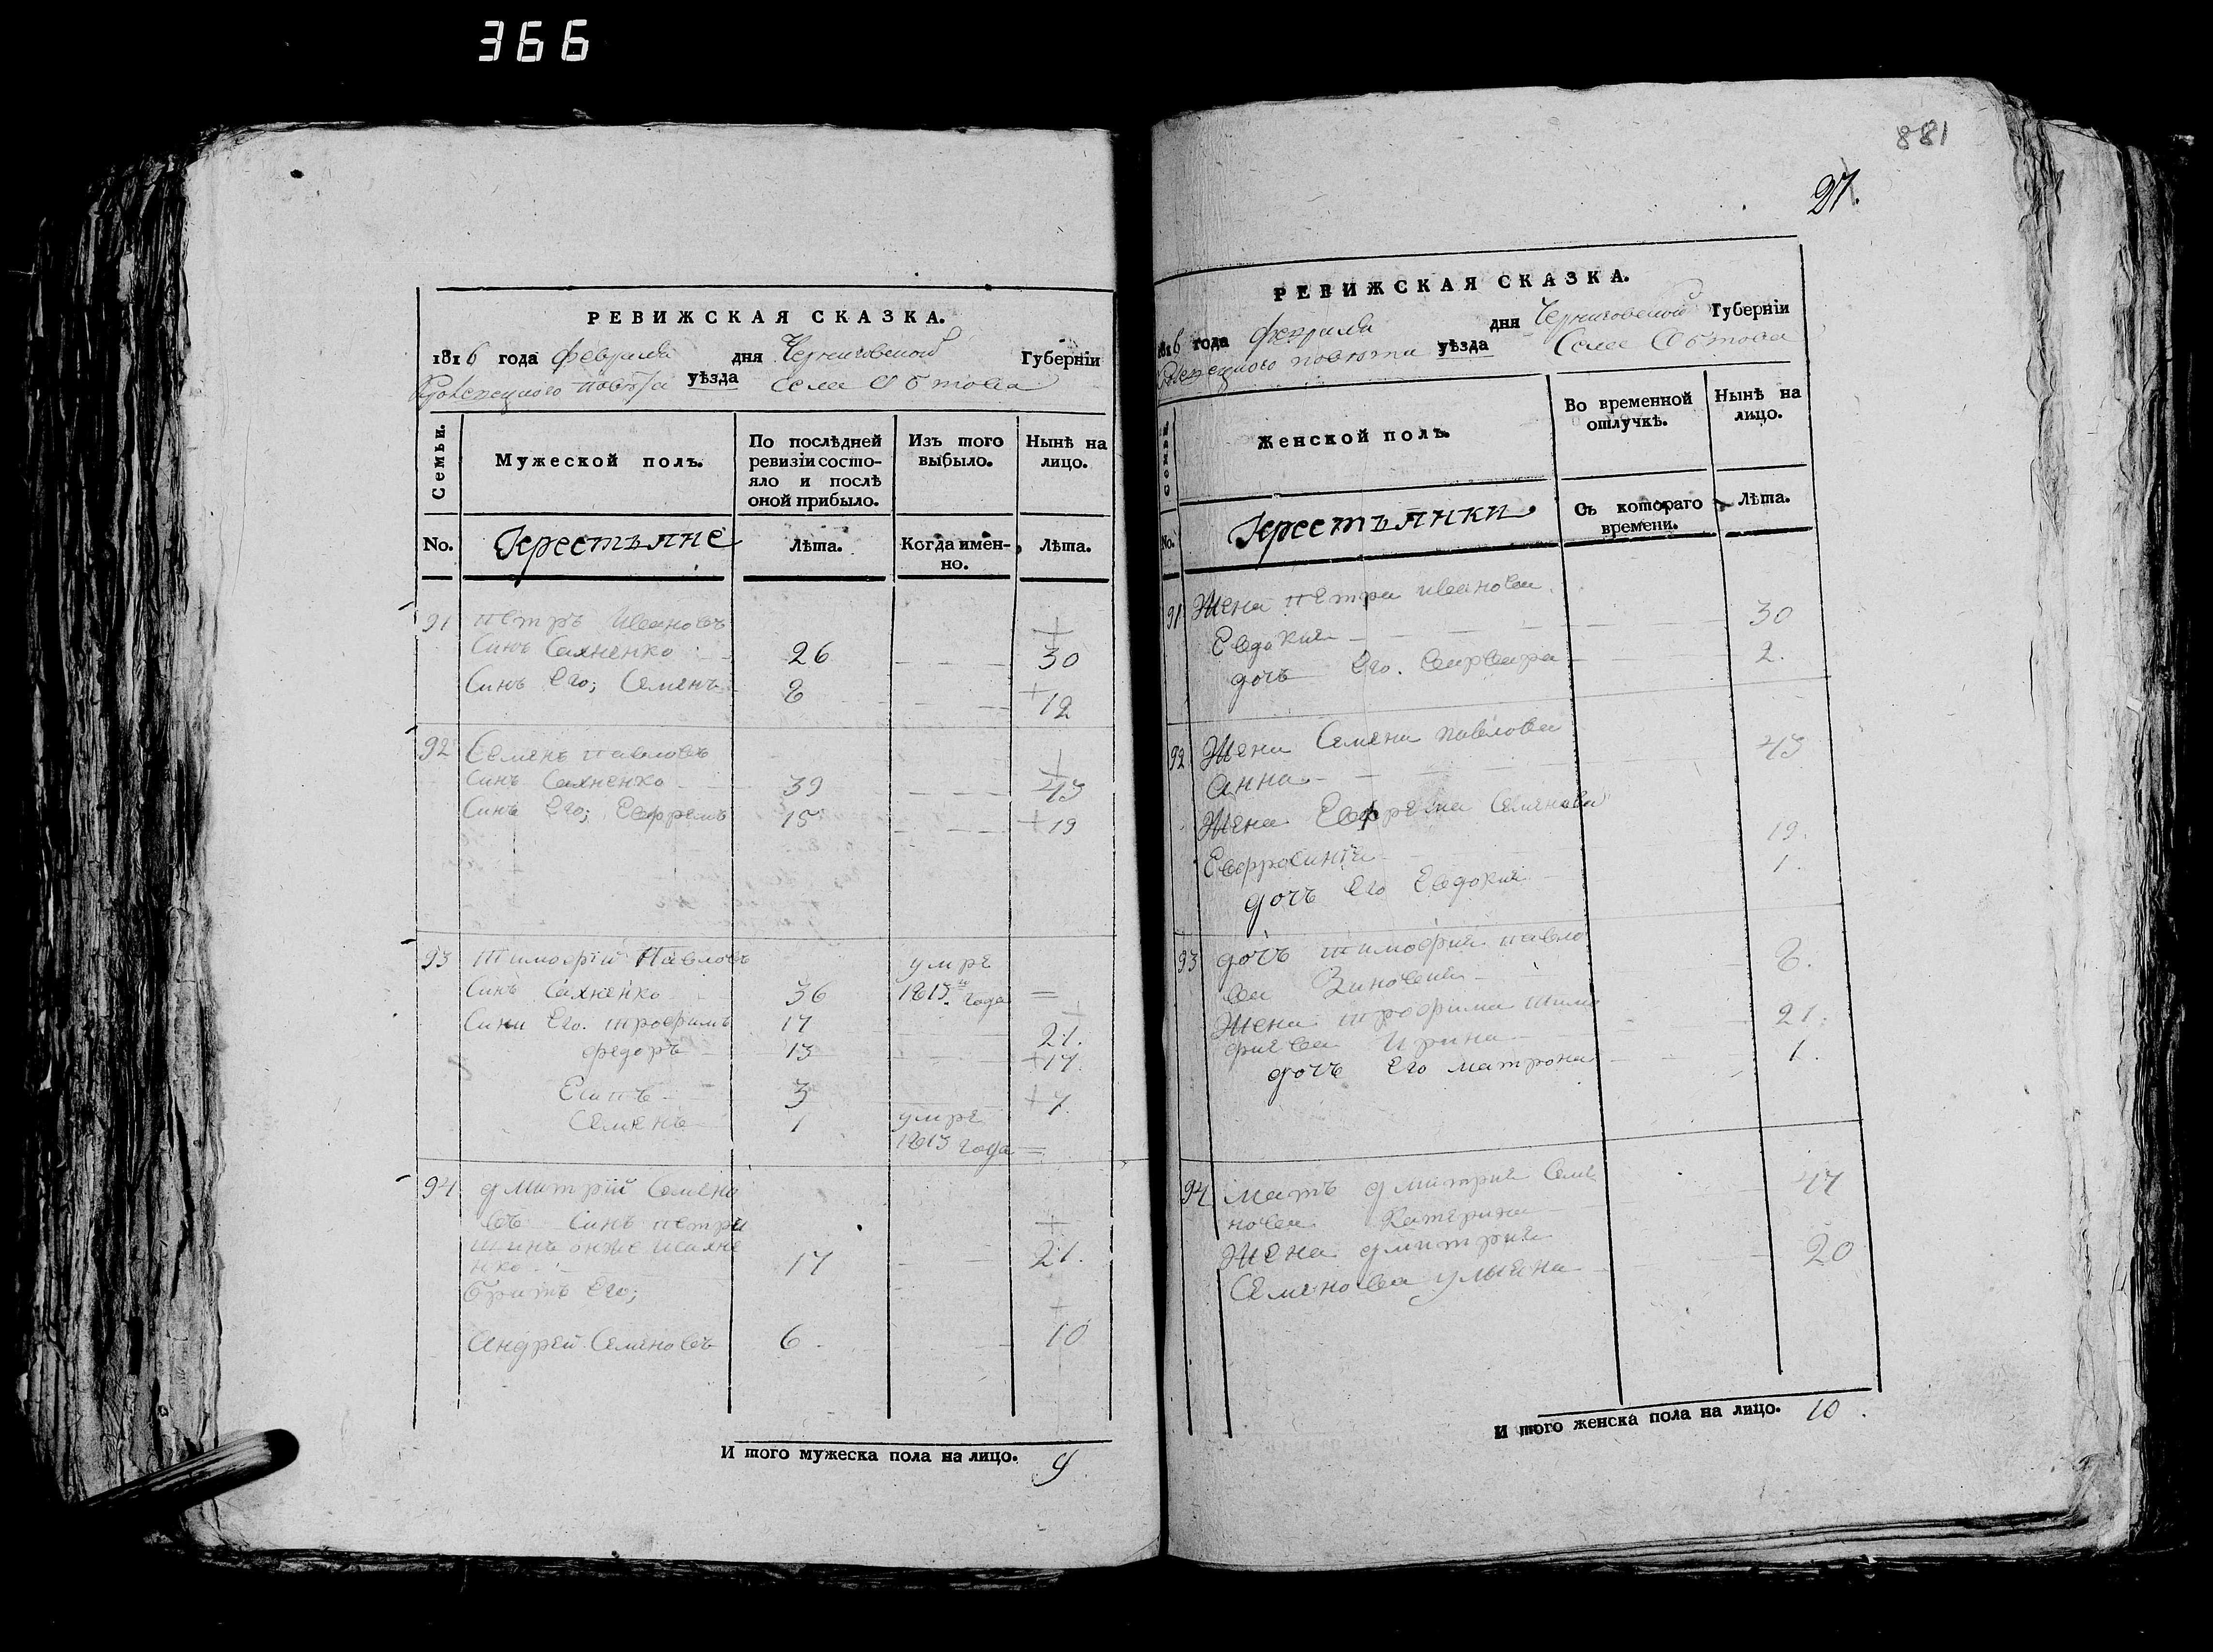 366
РЕВИЖСКАЯ СКАЗКА.
1816 года февраля дня Черниговской Губерніи
Кролевецкого повѣта уѣзда села Обтова
Семьи. Мужеской полъ. По послѣдней ревизіи состояло и послѣ оной прибыло. Изъ того выбыло. Нынѣ на лицо.
No. Крестьяне Лѣта. Когда именно. Лѣта.
91 петръ Ивановъ
Синъ Сахненко 26 30
Синъ Его; Семенъ 8 12
92 Семенъ павловъ
Синъ Сахненко 39 43
Синъ Его; Евфремъ 15 19
93 Тимофій Павловъ умре
Синъ Сахненко 36 1815 года
Сини Его. трофимъ 17 21.
федоръ 13 17.
Есипъ 3 7.
Семенъ 1 умре
1813 года
94 дмитрій Семено
въ Синъ петри
шинъ онже Исахне
нко 17 21.
братъ Его;
андрей Семеновъ 6 10
И того мужеска пола на лицо. 9
881
27.
РЕВИЖСКАЯ СКАЗКА.
1816 года февраля дня Черниговской Губерніи
Кролевецкого повѣта уѣзда Села Обтова
Женской полъ. Во временной отлучкѣ. Нынѣ на лицо.
No. Крестьянки Съ котораго времени. Лѣта.
91 Жена петра иванова
Евдокия 30
дочъ Его. варвара 2.
92 Жена Семена павлова
анна 43
Жена Евфрема Семенова
Евфросиния 19.
дочъ Его Евдокия 1.
93 дочъ тимофия павло
ва Зиновия 8.
Жена трофима тимо
фиева Ирина 21.
дочъ Его матрона 1.
94 матъ дмитрия Семе
нова Катерина 47
Жена дмитрия
Семенова улияна 20
И того женска пола на лицо. 10.